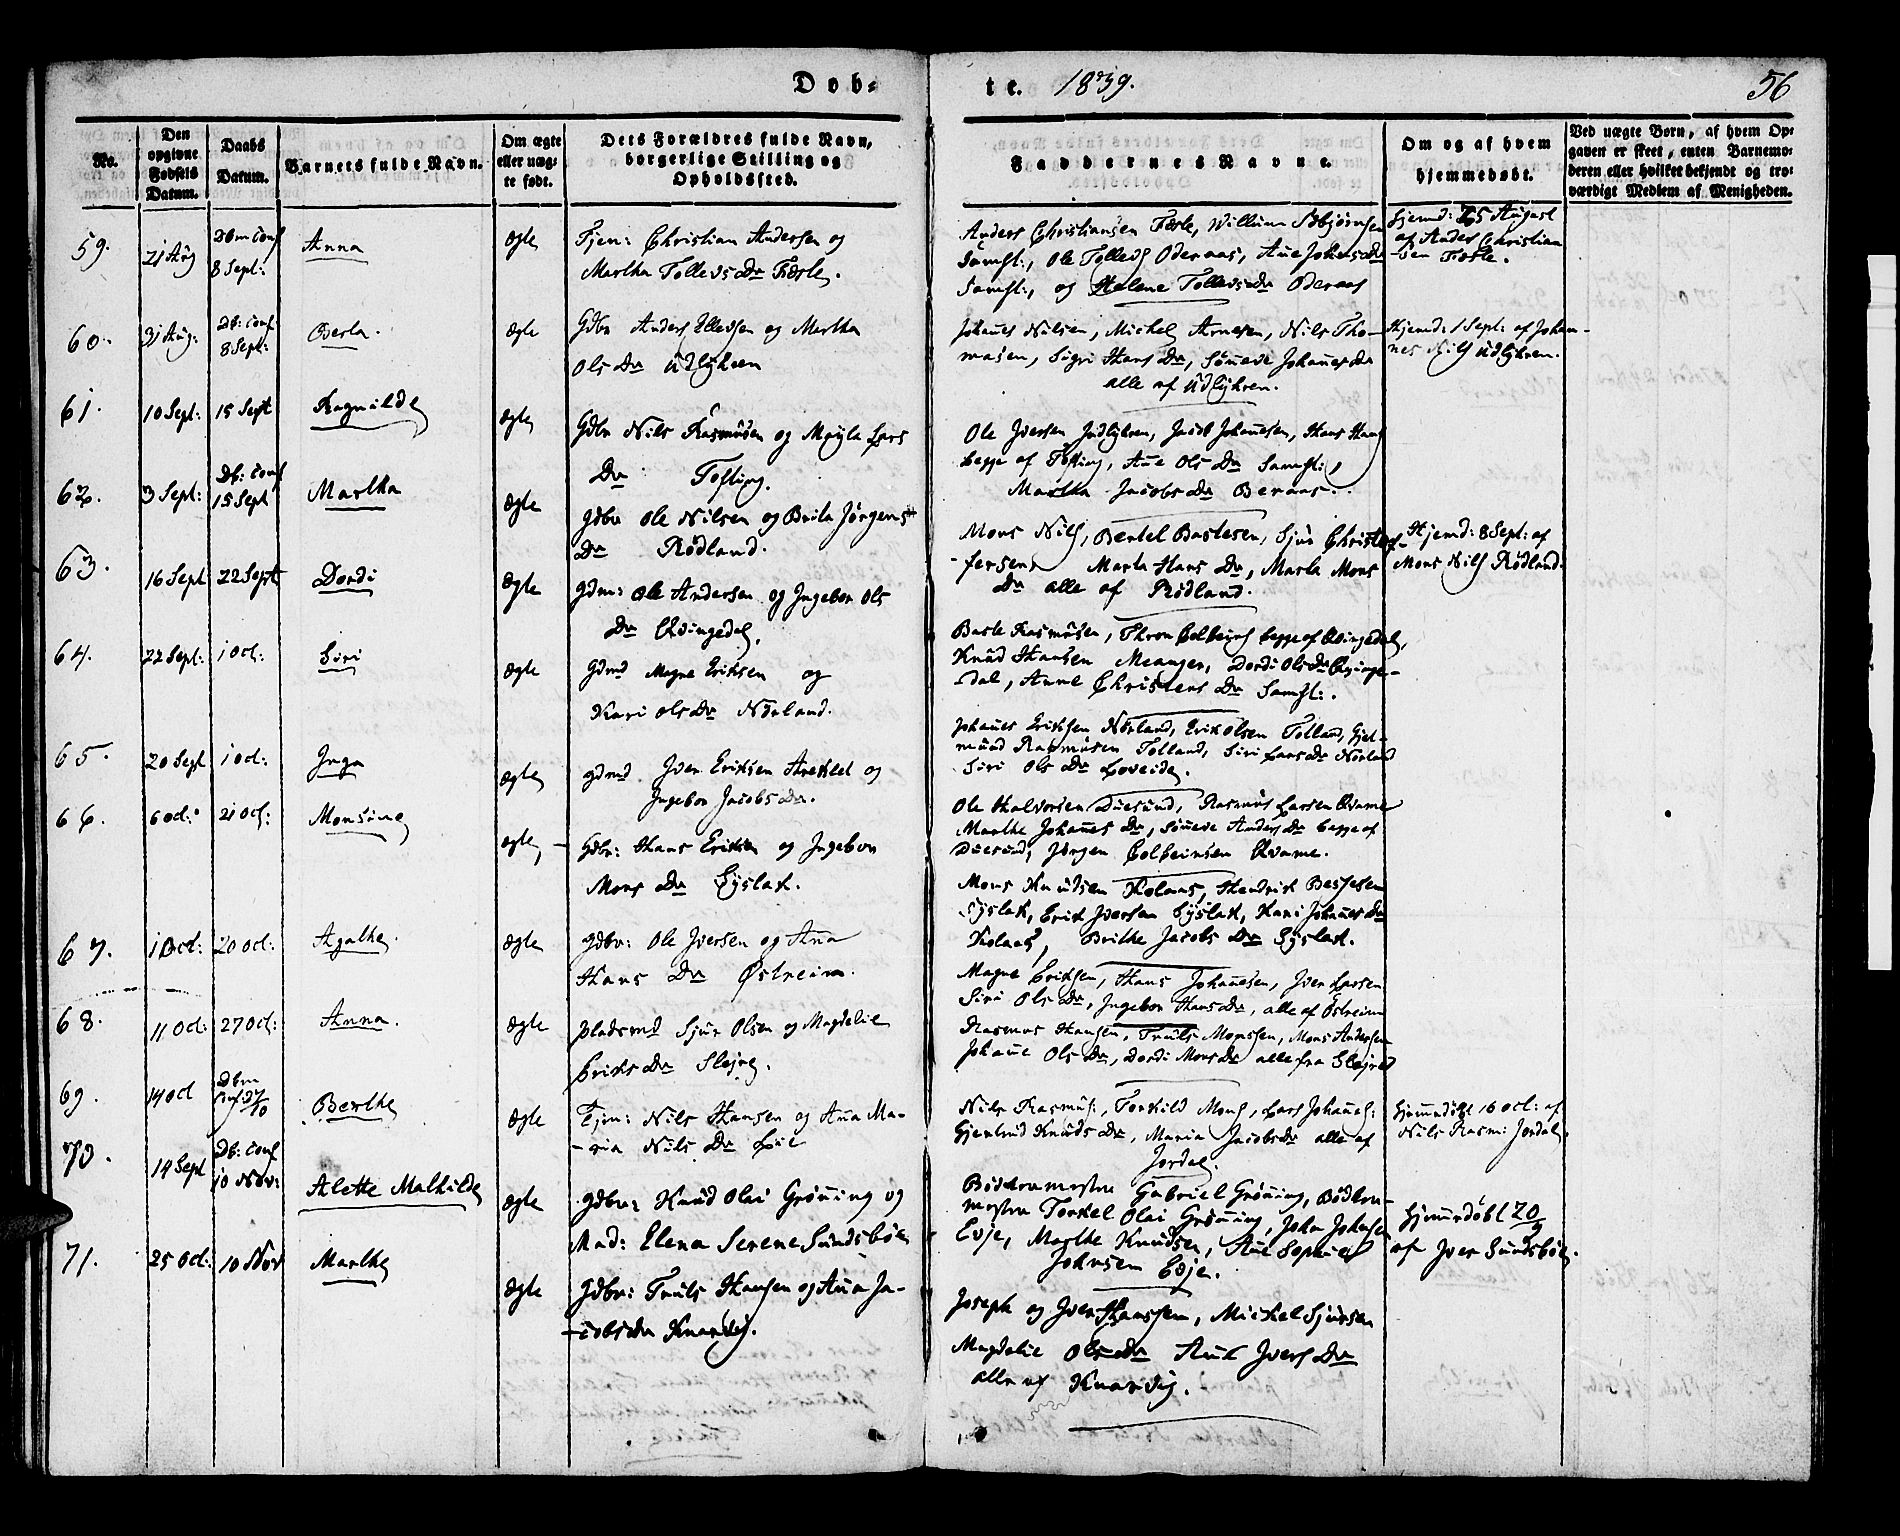 Døb-
te. 1839.
56
No.
Den opgivne Fødsels Datum.
Daabs Datum.
Barnets fulde Navn.
Om ægte eller uægte født.
Dets Forældres fulde Navn, borgerlige Stilling og Opholdssted.
Faddernes Navne.
Om og af hvem hjemmedøbt.
Ved uægte Børn, af hvem Opgaven er skeet, enten Barnemoderen eller hvilket bekjendt og troværdigt Medlem af Menigheden.
59. 21 Aug Dbm Conf 8 Sept: Anna Ægte
Tjen: Christian Andersen og
Martha Tollevs Dr Fæste.
Anders Christiansen Fæste, Willum Asbjørnsen
Samst:, Ole Tollevs Oderaas, Ane Johans Dr
Samst:, og Helene Tollevs Dr Oderaas
Hjemd: 25 August
af Anders Christian
-sen Fæste.
60. 31 Aug: Db: Conf 8 Sept: Berta. Ægte
Gdbr Anders Ellevsen og Martha
Ols Dr Udlykren
Johanes Nilsen, Michel Arnesen, Nils Tho-
masen, Sigri Hans Dr, Søneve Johanes Dr
alle af Udlykren.
Hjemd: 1 Sept: af Johan-
nes Nils Udlykren.
61. 10 Sept: 15 Sept Ragnilde Ægte
Gdbr Nils Rasmusen og Lars
Dr Tofting.
Ole Iversen Indlykren, Jacob Johanesen, Hans Hans
begge af Tofting, Ane Ols Dr Samst:,
Martha Jacobs Dr Beraas.
62. 3 Sept: Db: Conf 15 Sept Martha Ægte
Gdbr Ole Nilsen og Brita Jørgens
Dr Rødland.
Mons Nils, Bertel Bastesen, Sjur Christof-
fersen, Marta Hans Dr, Marta Mons
Dr alle af Rødland.
Hjemd: 8 Sept: af
Mons Nils Rødland.
63. 16 Sept 22 Sept Dordi Ægte
Gdm: Ole Andersen og Ingebor Ols
Dr Qvingedal.
Baste Rasmusen, Colbeins begge af Qvingedal,
Knud Hansen Meanger, Dordi Ols Dr Qvinge-
dal, Anne Christens Dr Samst:.
64. 22 Sept: 1 Oct: Siri Ægte
Gdmd Magne Eriksen og
Kari Ols Dr Nørland.
Johanes Eriksen Nørland, Erik Olsen Tolland, Gjel-
mund Rasmusen Tolland, Siri Lars Dr Nørland
Siri Ols Dr Loveide.
65. 20 Sept 1 Oct: Inga Ægte
Gdmd Iver Eriksen og
Ingebor Jacobs Dr.
Ole Halvorsen Duesund, Rasmus Larsen Qvame
Marthe Johanes Dr, Søneve Anders Dr begge af
Duesund, Jørgen Colbeinsen Qvame.
66. 6 Oct: 21 Oct: Monsine Ægte
Gdbr: Hans Eriksen og Ingebor
Mons Dr Eyslak.
Mons Knudsen Kolaas, Hendrik Bessesen
Syslak, Erik Iversen Syslak, Kari Johanes Dr
Kolaas, Brithe Jacobs Dr Syslak.
67. 1 Oct: 20 Oct: Agathe. Ægte
Gdbr: Ole Iversen og Ana
Hans Dr Østreim.
Magne Eriksen, Hans Johanesen, Iver Larsen
Siri Ols Dr, Ingebor Hans Dr, alle af Østreim
68. 11 Oct: 27 Oct: Anna. Ægte
Pladsmd Sjur Olsen og Magdelie
Eriks Dr Sløjre.
Rasmus Hansen, Truls Monssen, Mons Andersen
Johane Ols Dr, Dordi Mons Dr alle fra Sløjre
69. 14 Oct Dbm Conf 27/10 Berthe Ægte
Tjen: Nils Hansen og Ana Ma-
-ria Nils Dr
Nils Rasmus:, Torkild Mons, Lars Johanes:
Gjertrud Knuds Dr, Maria Jacobs Dr alle af
Jordal.
Hjemdøbt 16 Oct: af
Nils Rasm: Jordal.
70. 14 Sept Db: Conf 10 Nov: Alette Mathilde Ægte
Gdbr: Knud Olai Grønning og
Mad: Elena Serene Sundsbøe
Bødkermester Gabriel Grønning, Bødker-
mester Torkel Olai Grønning, John Johnsen
Evje, Marthe Knudsen, Ane Sophie
Johnsen Evje.
Hjemdøbt 20/9
af Iver Sundsbøe.
71. 25 Oct: 10 Nov Marthe Ægte
Gdbr: Truls Hansen og Ana Ja-
-cobs Dr Knarvig.
Joseph og Iver Hanssen, Michel Sjursen
Magdelie Ols Dr Ane Ivers Dr
alle af Knarvig.